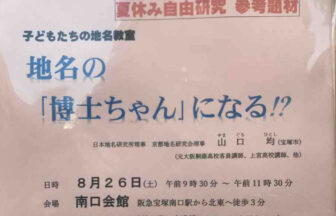 夏休み自由研究 参考題材
子どもたちの地名教室
地名の
「博士ちゃん」になる!?
日本地名研究所理事 京都地名研究会理事 山口 均 (宝塚市)
やま ぐち ひとし
(元大阪桐蔭高校客員講師、上宮高校講師、他)
日時 8月26日(土) 午前9時30分 ～ 午前11時30分
会場 南口会館 阪急宝塚南口駅から北東へ徒歩3分